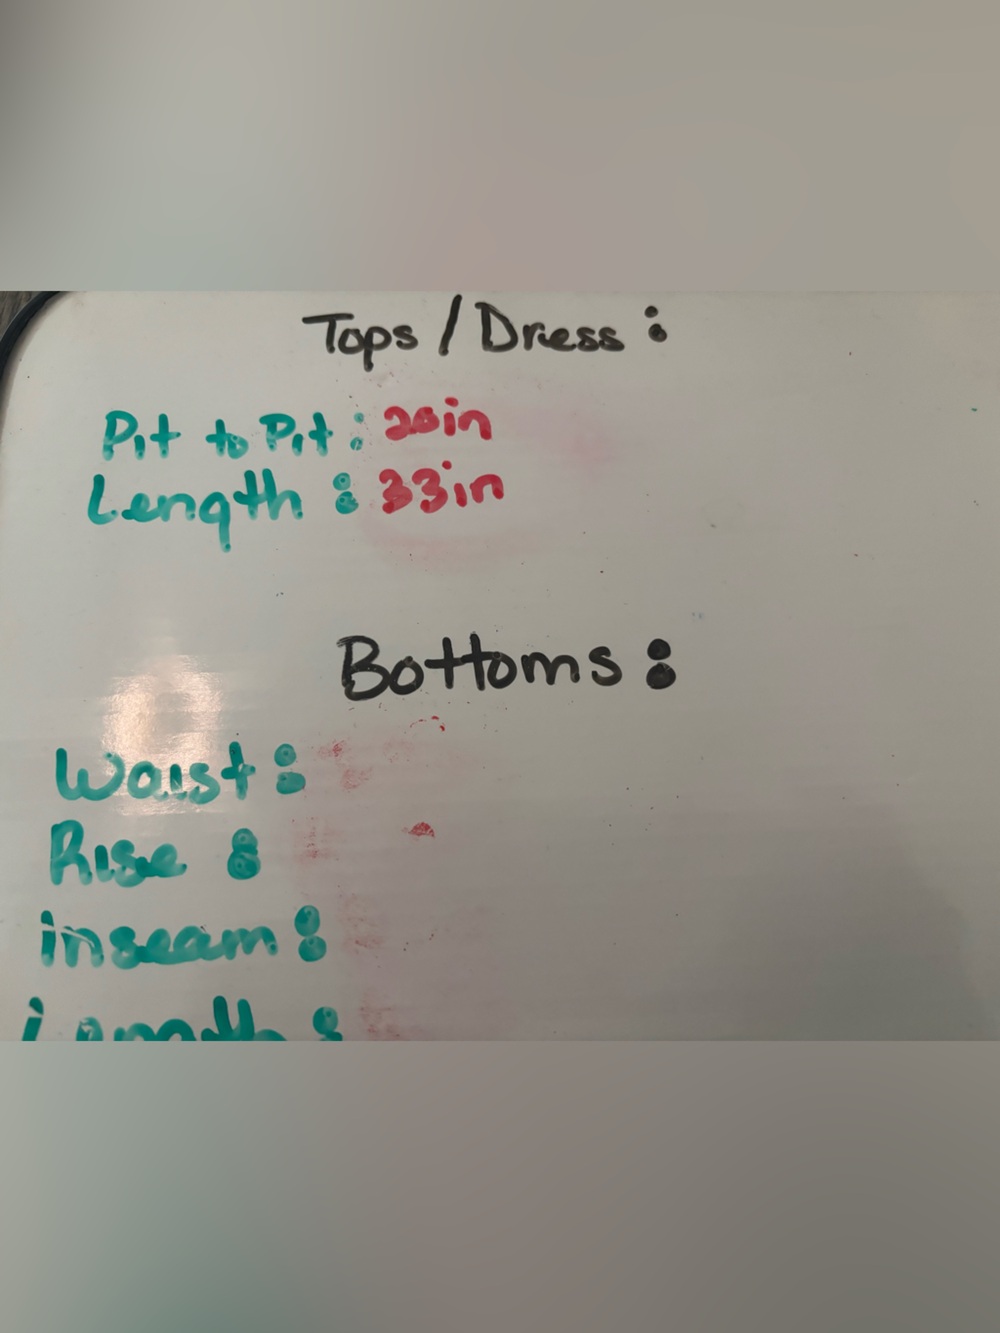 Tops / Dress :
Pit to Pit : 20in
Length : 33in
Bottoms :
Waist :
Rise :
inseam :
Length :